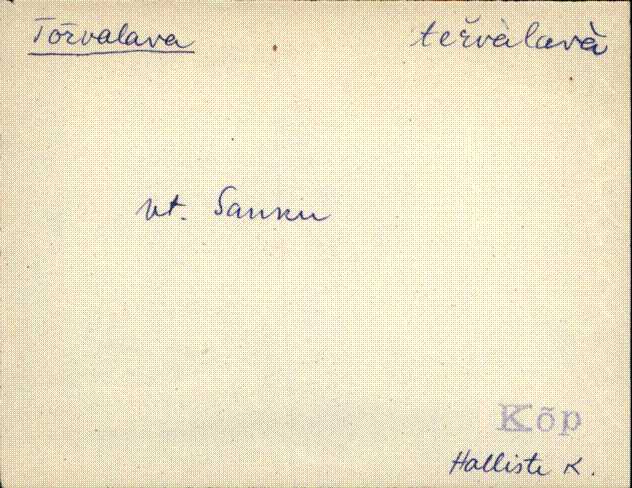 Tõrvalava teřvàlavà
vt. Sanku
Kõp
Halliste K.